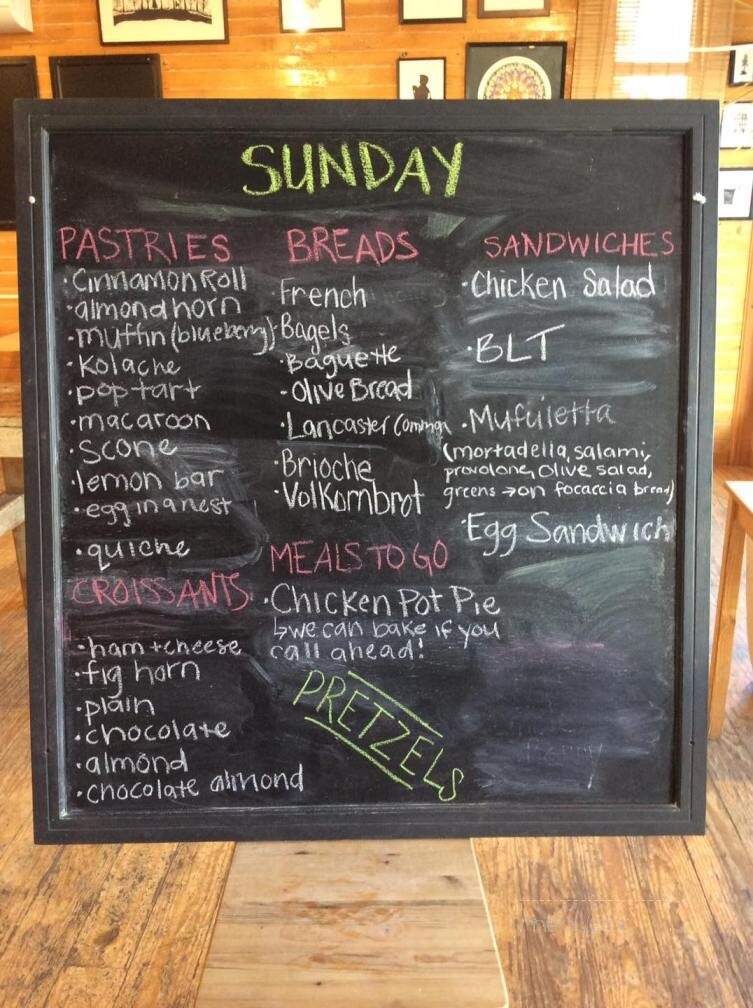 SUNDAY
PASTRIES
·Cinnamon Roll
·almond horn
·muffin (blueberry)
·Kolache
·pop tart
·macaroon
·Scone
·lemon bar
·egg in a nest
·quiche
CROISSANTS
·ham + cheese
·fig horn
·plain
·chocolate
·almond
·chocolate almond
BREADS
·French
·Bagels
·Baguette
·Olive Bread
·Lancaster Common
·Brioche
·VolKornbrot
MEALS TO GO
·Chicken Pot Pie
↳we can bake if you
call ahead!
PRETZELS
SANDWICHES
·Chicken Salad
·BLT
·Mufuletta
(mortadella, salami,
provolone, olive salad,
greens → on focaccia bread)
·Egg Sandwich